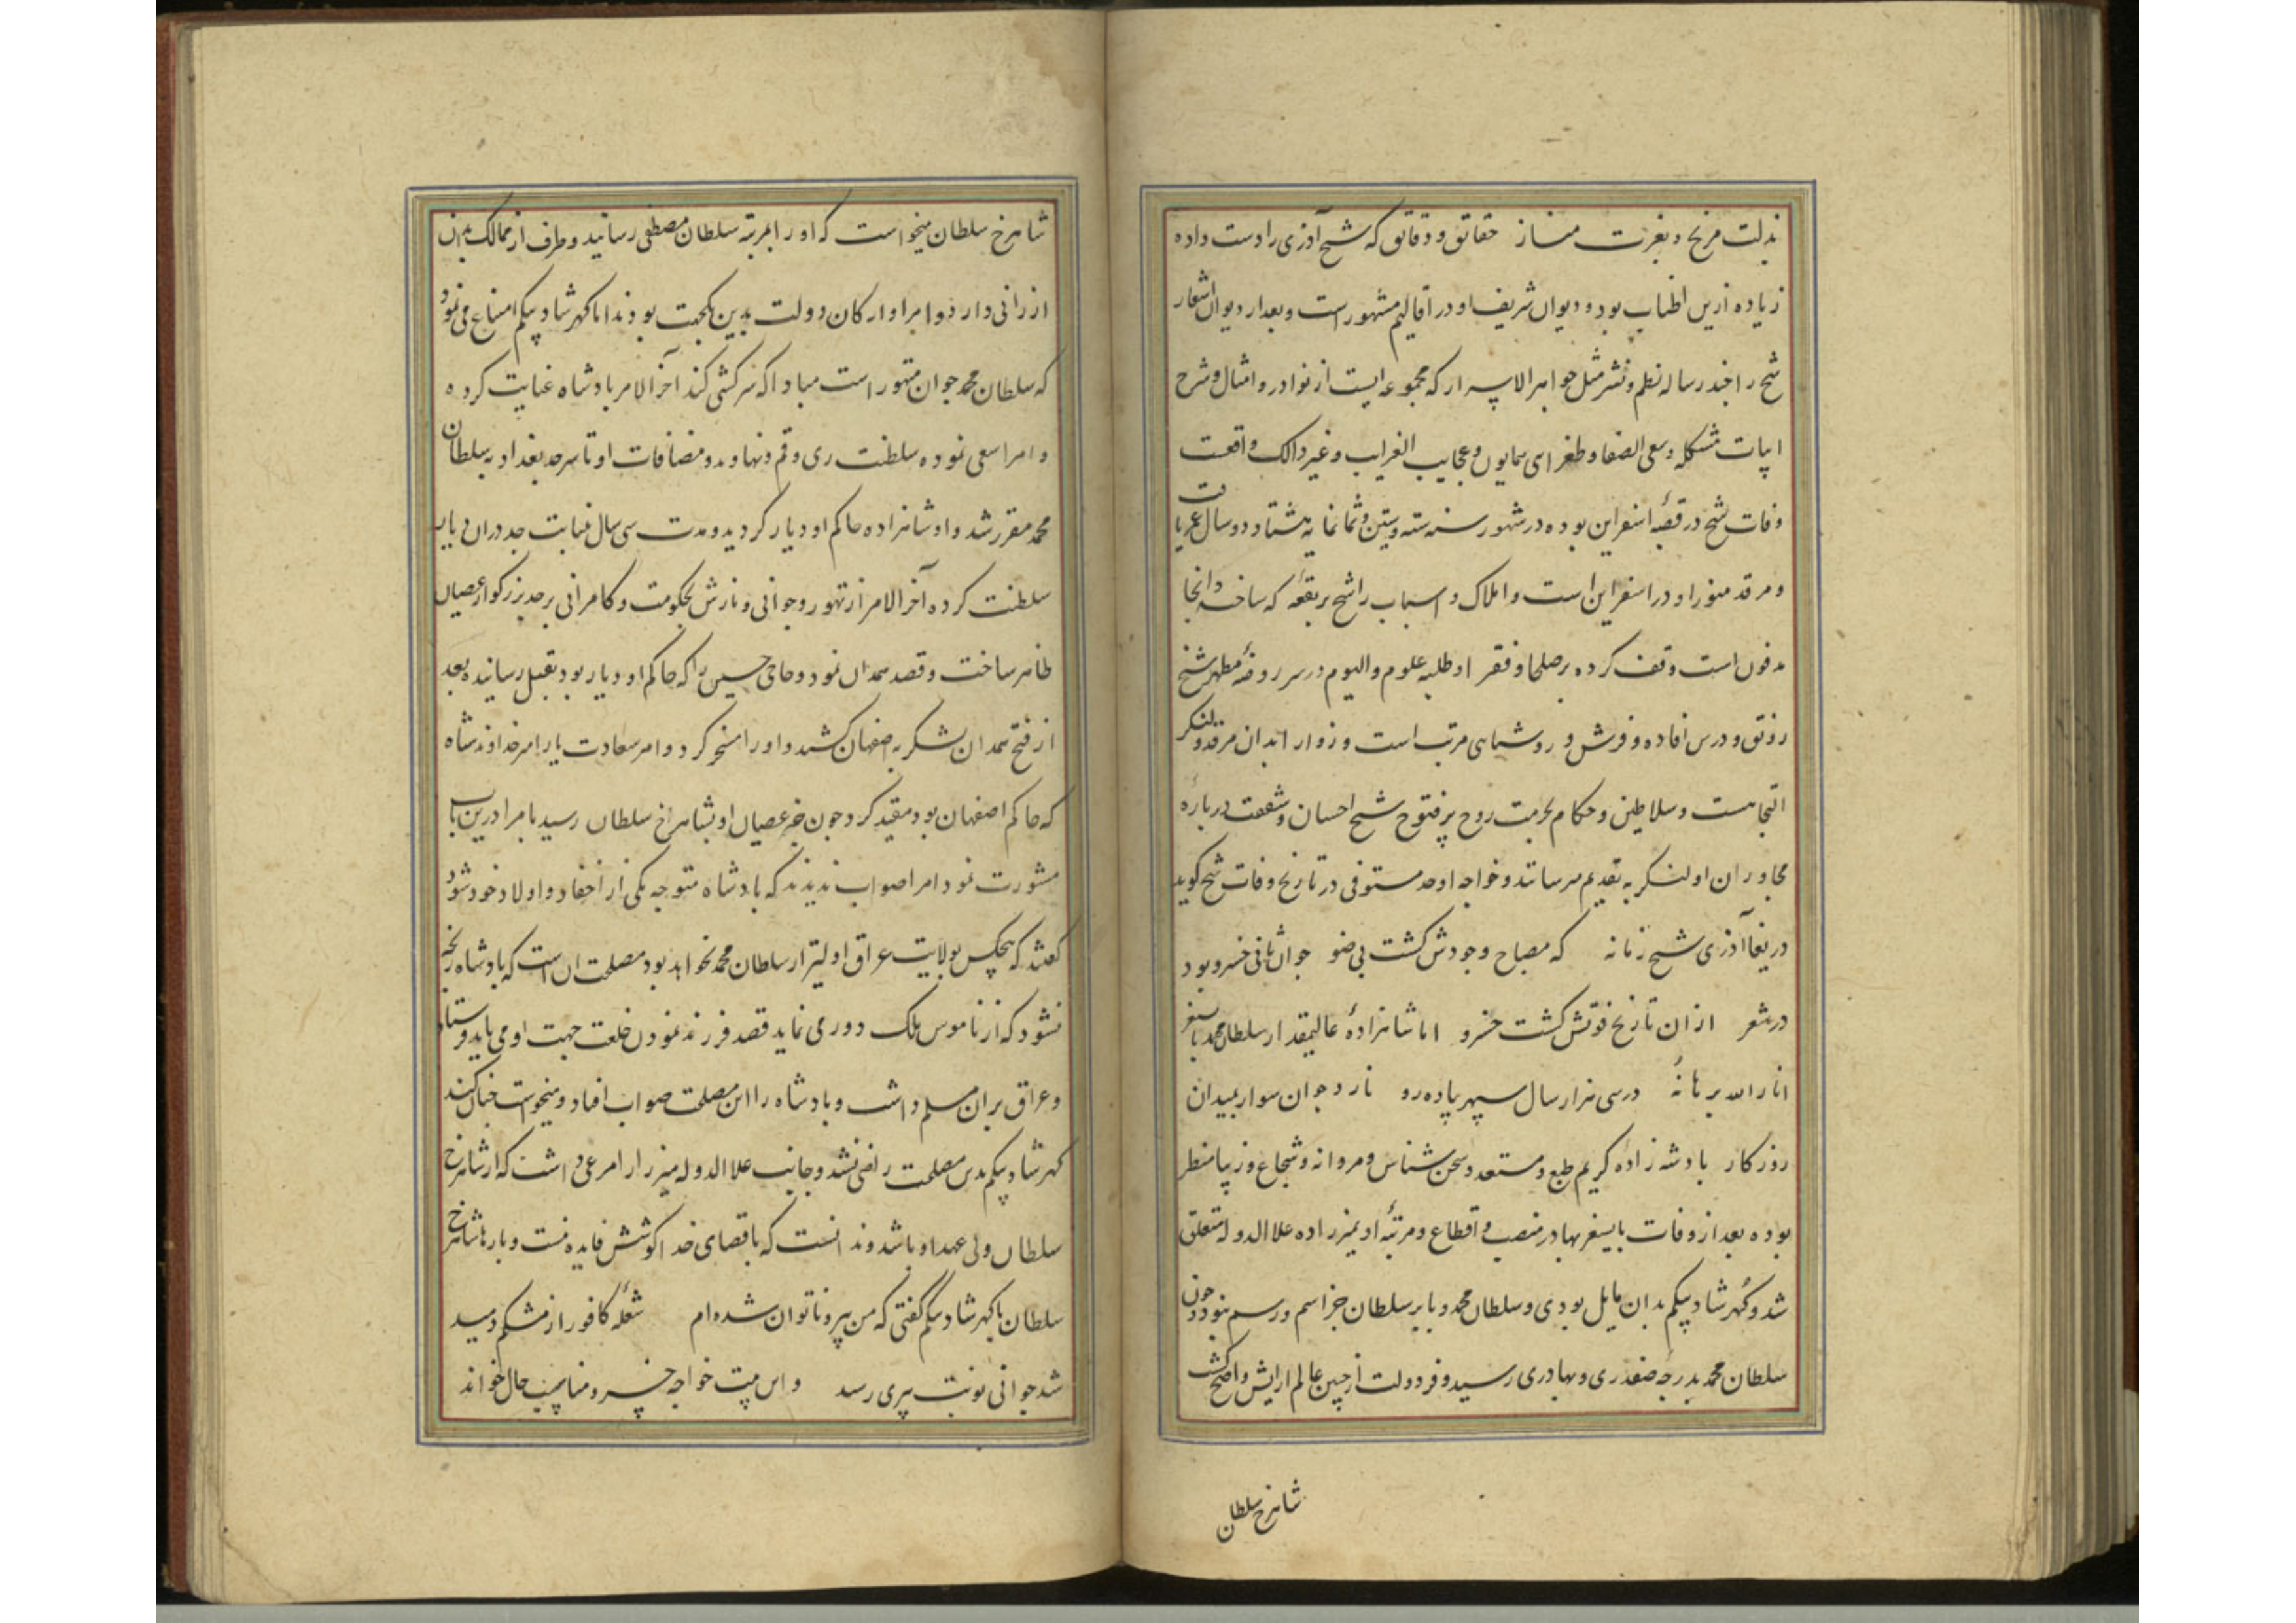 بذلت مرنج و بعزت مناز حقائق و دقائق که شیخ آذری را دست داده
زیاده ازین اطناب بود و دیوان شریف او در اقالیم مشهور است و بعد از دیوان اشعار
شیخ را چند رساله نظم و نثر مثل جواهر الاسرار که مجموعه ایست از نوادر و امثال و شرح
ابیات مشکله و سعی الصفا و طغرای همایون و عجایب الغرایب و غیر ذالک واقعست
وفات شیخ در قصبهٔ اسفراین بوده در شهور سنه سته و ستین و ثمانمایه هشتاد و دو سال عمر یافت
و مرقد منور او در اسفراین است و املاک و اسباب را شیخ بر بقعه که ساخته و آنجا
مدفون است وقف کرده بر صلحا و فقرا و طلبه علوم و الیوم در سر روضهٔ مطهر شیخ
رونق و درس افاده و فرش و روشنایی مرتب است و زوار را بدان مرقد و لنگر
التجاست و سلاطین و حکام بحرمت روح پرفتوح شیخ احسان و شفقت دربارهٔ
مجاوران او لنگر به تقدیم میرسانند و خواجه اوحد مستوفی در تاریخ وفات شیخ گوید
دریغا آذری شیخ زمانه که مصباح وجودش گشت بی ضو جو او ثانی خسرو بود
در شعر ازان تاریخ فوتش گشت خسرو اما شاهزادهٔ عالیمقدار سلطان محمد بایسنغر
انار الله برهانهٔ در سی هزار سال سپهر پیاده رو نارد جوان سوار بمیدان
روزکار پادشه زاده کریم طبع و مستعد و سخن شناس و مردانه و شجاع و زیبا منظر
بوده بعد از وفات بایسنغر بهادر منصب و اقطاع و مرتبهٔ او بمیرزاده علاالدوله متعلق
شد و گهرشاد بیگم بدان مایل بودی و سلطان محمد و بابر سلطان جز اسم و رسم نبود و چون
سلطان محمد بدرجه صفدری و بهادری رسید و فر دولت از جبین عالم آرایش واضح گشت
شاهرخ سلطان
شاهرخ سلطان میخواست که او را بمرتبه سلطان مصطفی رسانید و طرف از ممالک بدان
ارزانی دارد و امرا و ارکان دولت بدین یکجهت بودند اما گهرشاد بیگم امتناع می نمود
که سلطان محمد جوان متهور است مبادا که سرکشی کند آخر الامر پادشاه عنایت کرده
و امرا سعی نموده سلطنت ری و قم و نهاوند و مضافات او تا سرحد بغداد به سلطان
محمد مقرر شد و او شاهزاده حاکم او دیار گردید و مدت سی سال نیابت جد دران دیار
سلطنت کرده آخر الامر از تهور و جوانی و نازش بحکومت و کامرانی بر جد بزرگوار عصیان
ظاهر ساخت و قصد همدان نمود و حاجی حسین را که حاکم او دیار بود بقتل رسانیده بعد
از فتح همدان لشکر به اصفهان کشید و او را مسخر کرد و امیر سعادت یار امیر خداوندشاه
که حاکم اصفهان بود مقید کرد چون خبر عصیان او بشاهرخ سلطان رسید با امرا درین باب
مشورت نمود امرا صواب ندیدند که پادشاه متوجه یکی از احفاد و اولاد خود شود
گفتند که هیچکس بولایت عراق اولیتر از سلطان محمد نخواهد بود مصلحت آن است که پادشاه رنجه
نشود که از ناموس ملک دور می نماید قصد فرزند نمودن خلعت جهت او می باید فرستاد
و عراق بران مسلم داشت و پادشاه را این مصلحت صواب افتاد و میخواست چنان کند
گهرشاد بیگم بدین مصلحت راضی نشد و جانب علاالدوله میرزا را مرعی داشت که از شاهرخ
سلطان ولی عهد او باشد و ندانست که با قضای خدا کوشش فایده نیست و بارها شاهرخ
سلطان با گهرشاد بیگم گفتی که من پیر و ناتوان شده ام شعلهٔ کافور از مشکم دمید
شد جوانی نوبت پیری رسید و این بیت خواجه خسرو مناسب حال خواند